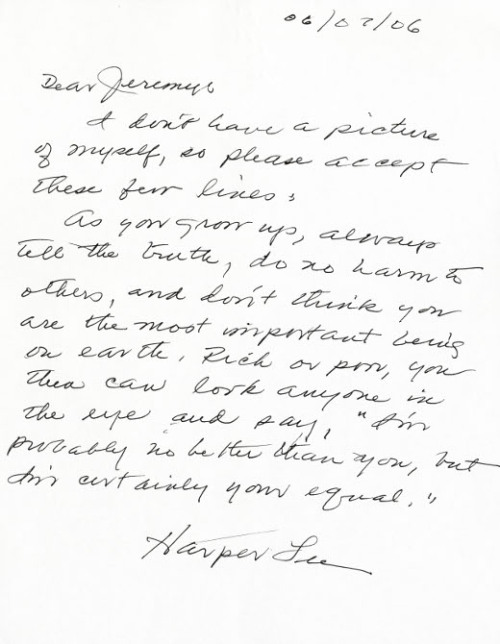 06/07/06
Dear Jeremy:
I don't have a picture
of myself, so please accept
these few lines:
As you grow up, always
tell the truth, do no harm to
others, and don't think you
are the most important being
on earth. Rich or poor, you
then can look anyone in
the eye and say, "I'm
probably no better than you, but
I'm certainly your equal."
Harper Lee